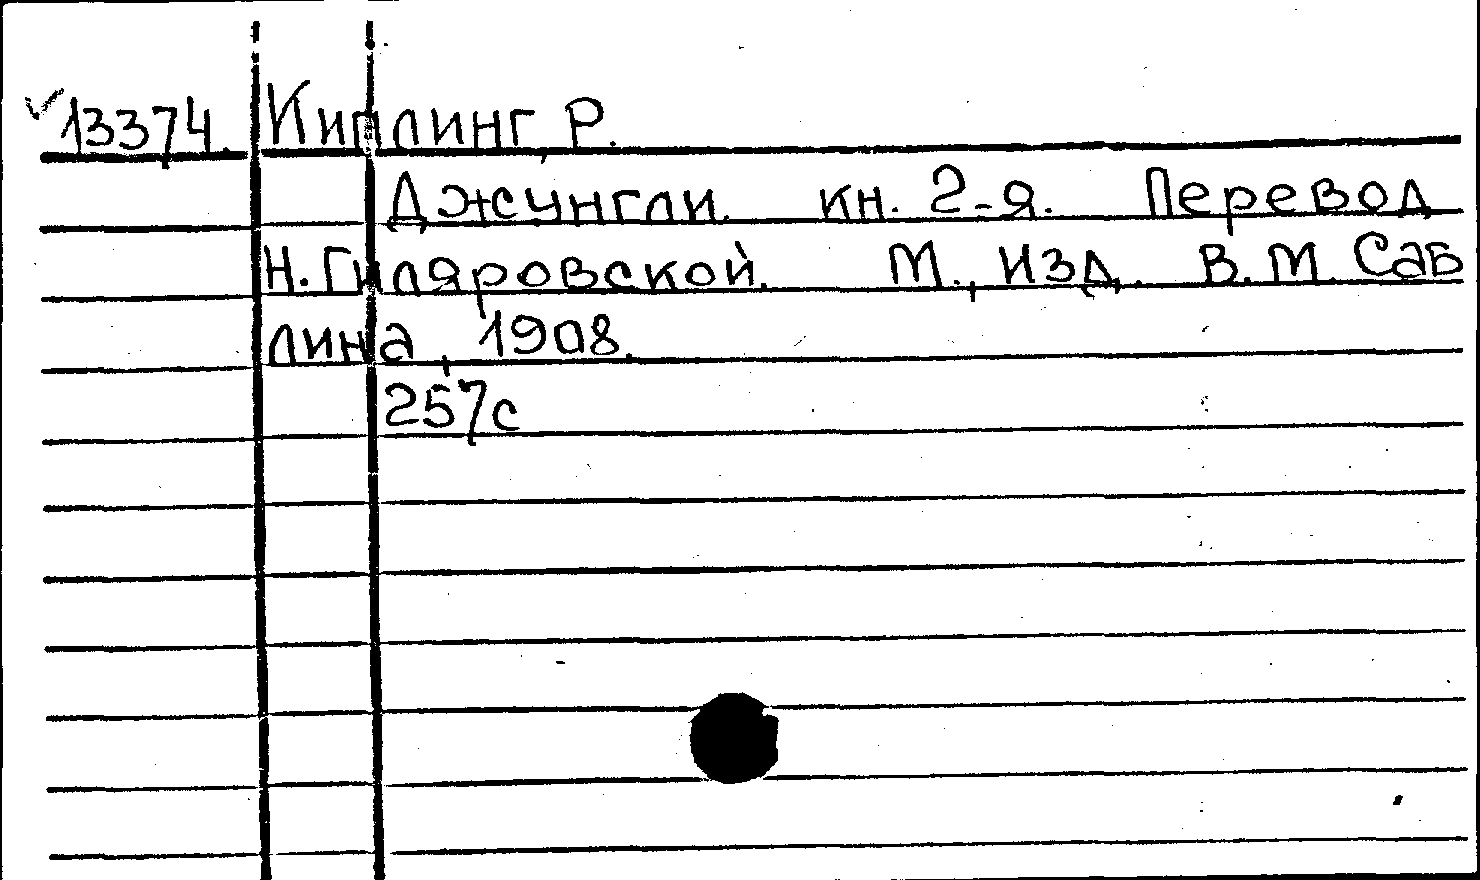 13374. Киплинг, Р.
Джунгли. кн. 2-я. Перевод
Н. Гиляровской. М., изд. В. М. Саб
лина, 1908.
257с